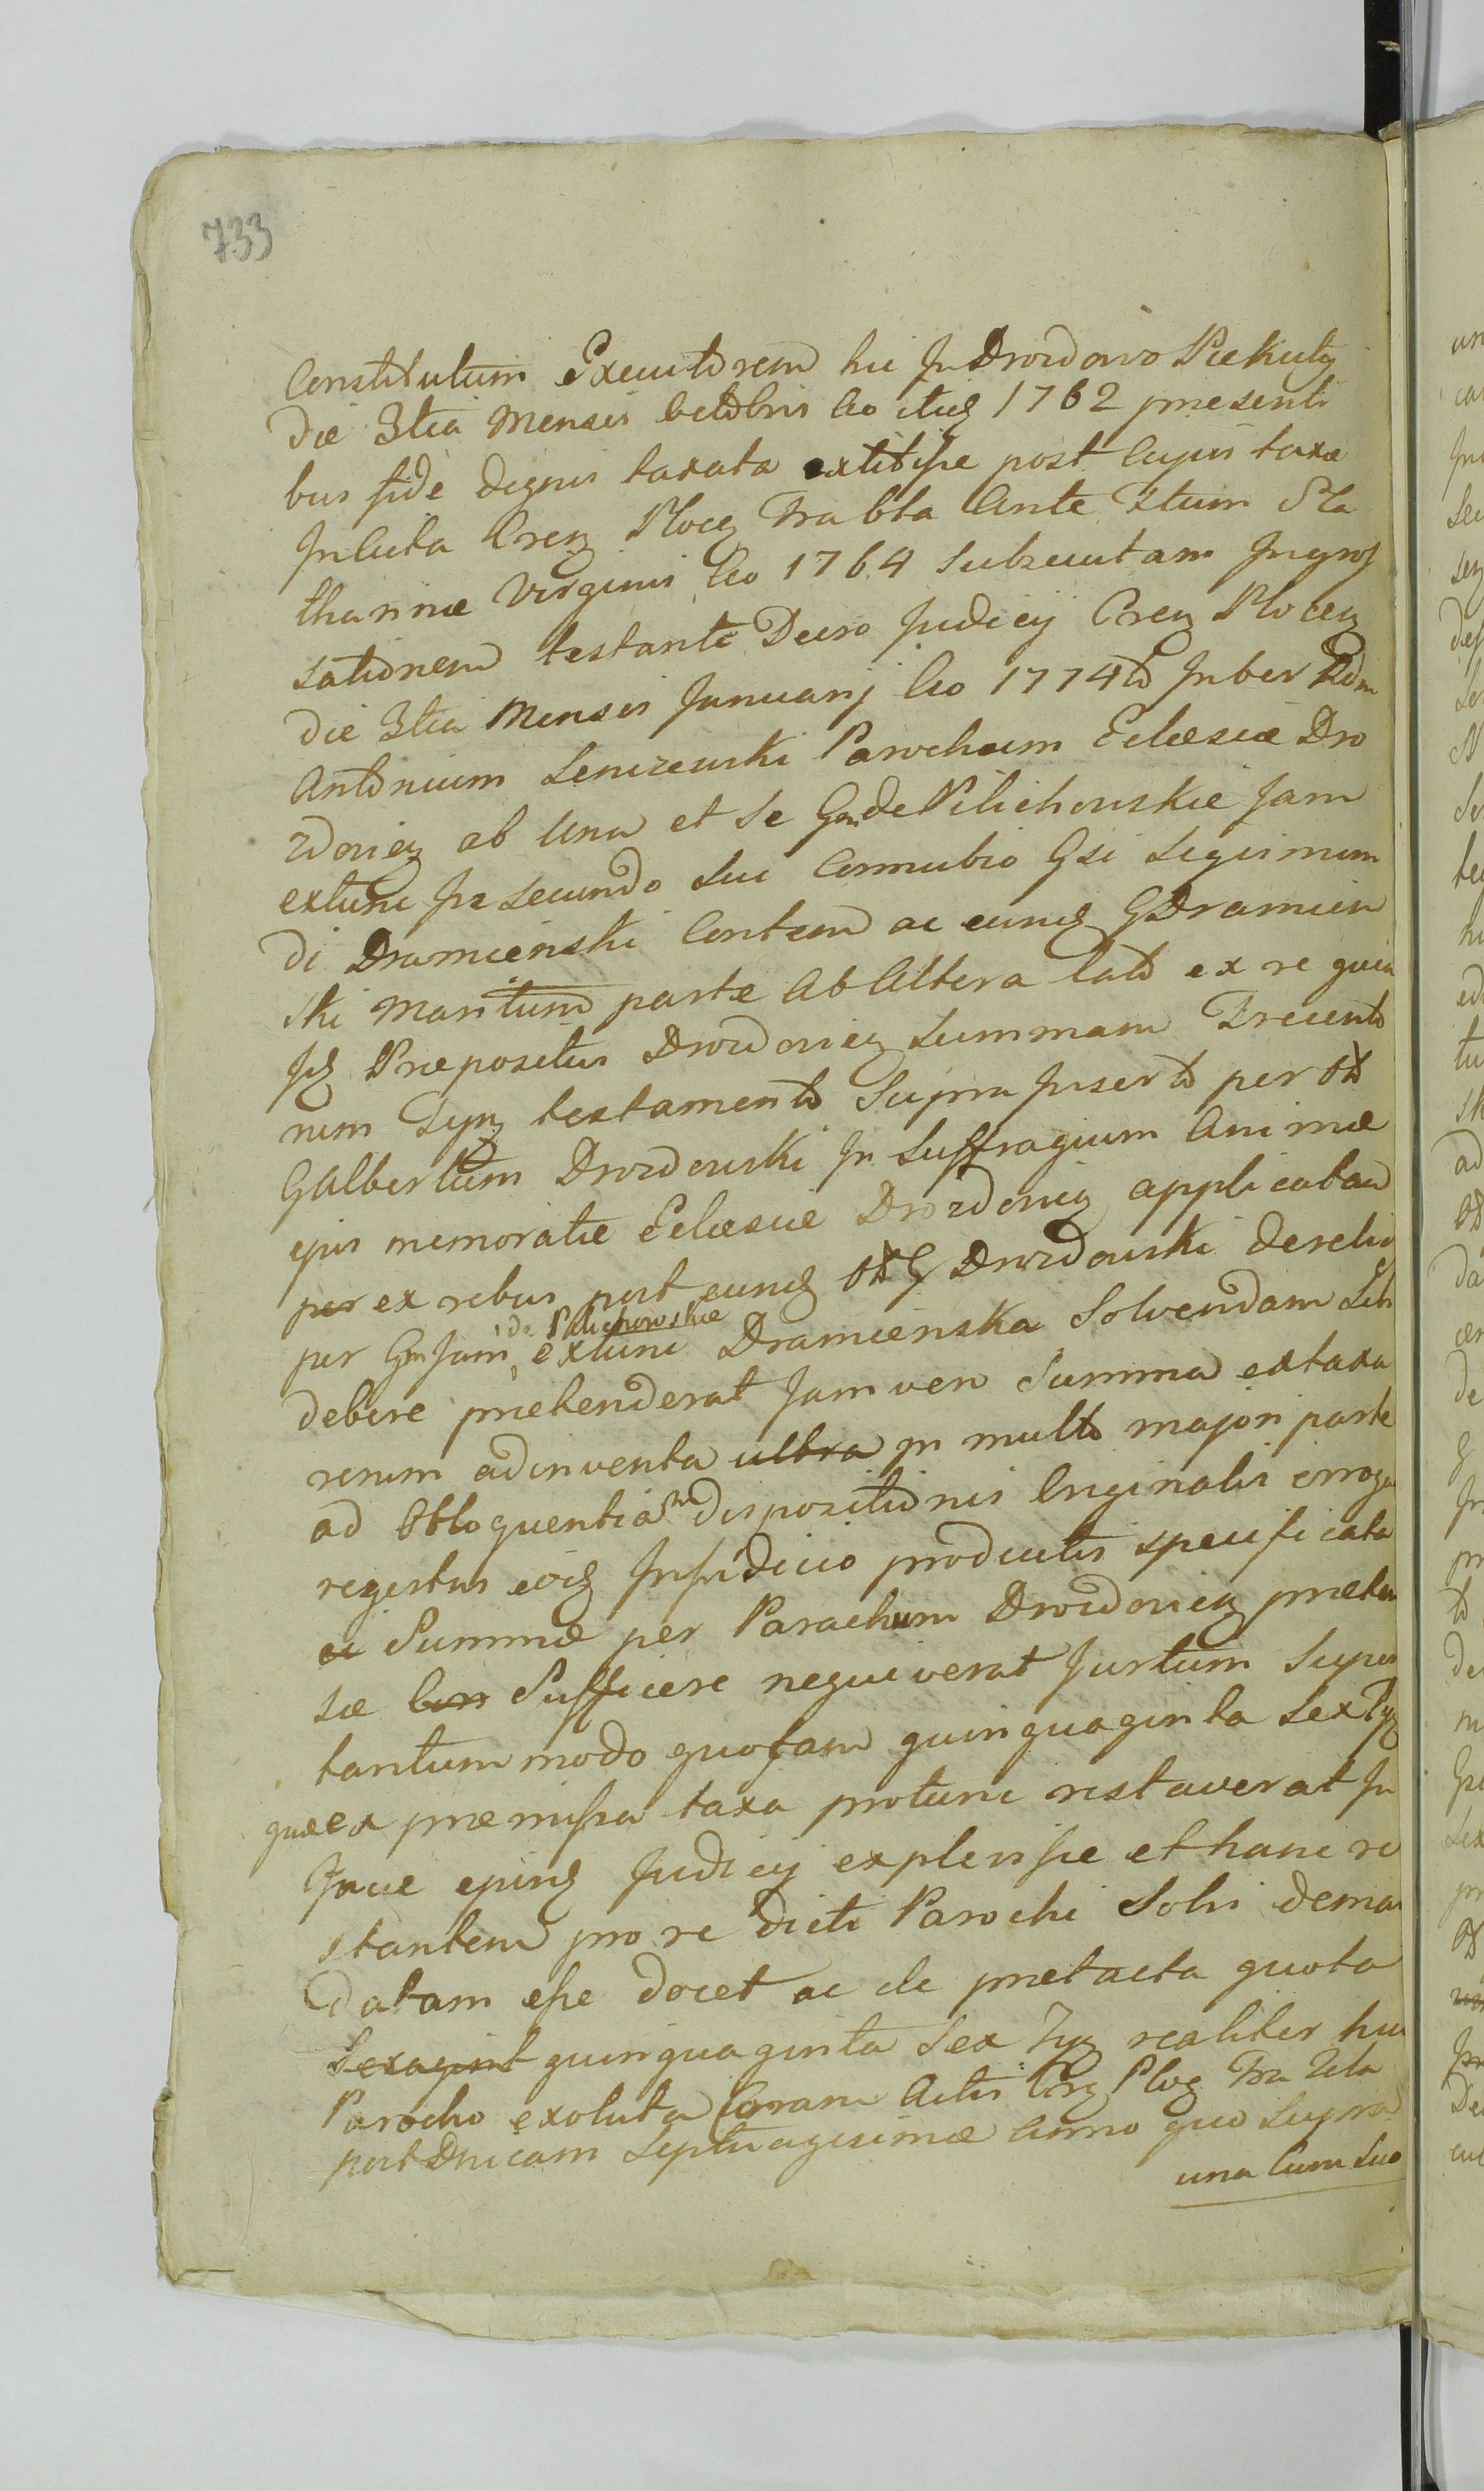 733
Constitutum Executorem hic In Drozdowo Piekuty
die 3tia Mensis Octobris Ao itidq 1762 praesenti
bus fide dignis taxata extitisse post cujus taxae
In Acta Cren Plocen Fra bta Ante Ftum Sta
tharinae Virginis Ao 1764 Subsecutam Ingros
sationem testante Decro Judicij Cren Plocen
die 3tia Mensis Januarij Ao 1774to Inter Rdm
Antonium Lenczewski Parochum Eclesiae Dro
zdovien ab Una et Se Gam de Pilichowskie Jam
extunc In secundo Sui Connubio Gsi Sigismun
di Dramienski Contem ac eundq G Dramien
ski Maritum parte Ab Altera lato ex re quia
Idq Praepositus Drozdovien Summam Trecento
rum Tynf testamento Supra Inserto per Ol
G Albertum Drozdowski In Suffragium Animae
ejus memoratae Eclesiae Drozdovien applicatam
per ex rebus post eundq Ol G Drozdowski derelic
per Gm Jam extunc de Pilichowskie Dramienska Solvendam Sibi
debere praetenderat Jam vero Summa ex taxa
rerum adinventa ultra in multo majori parte
ad Obloquentiam dispozitionis Originalis erroga
regestris eidq In Judicio productis specificata
ei Summae per Parochum Drozdovien praeten
sae Con Sufficere nequiverat Justum Super
tantum modo quotam quinquaginta Sex Tyn
quae ex praemissa taxa protunc restaverat In
Jnae ejusdq Judicij explevisse et hanc re
stantem pro re dicti Parochi Solvi deman
datam esse docet ac de praetacta quota
Sexagint quinquaginta Sex Tyn realiter huic
Parocho exoluta Coram Actis Cren Plocen Fra 2da
post Dnicam Septuagesimae Anno quo Supra
una Cum Suo